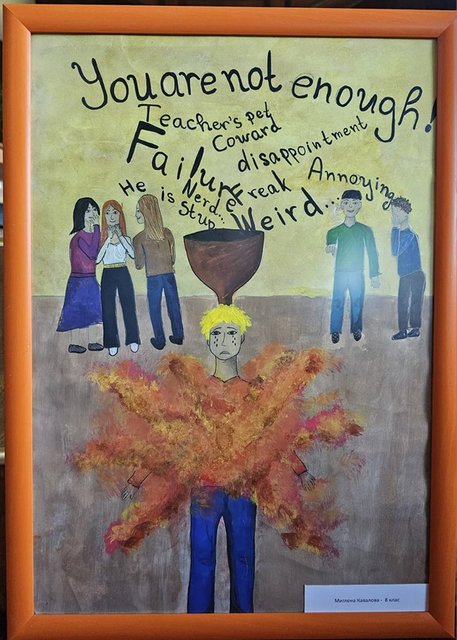 You are not enough!
Teacher's pet
Coward
disappointment
Failure
Annoying
Freak
He is Stup
Nerd...
Weird...
Миглена Кавалова - 8 клас